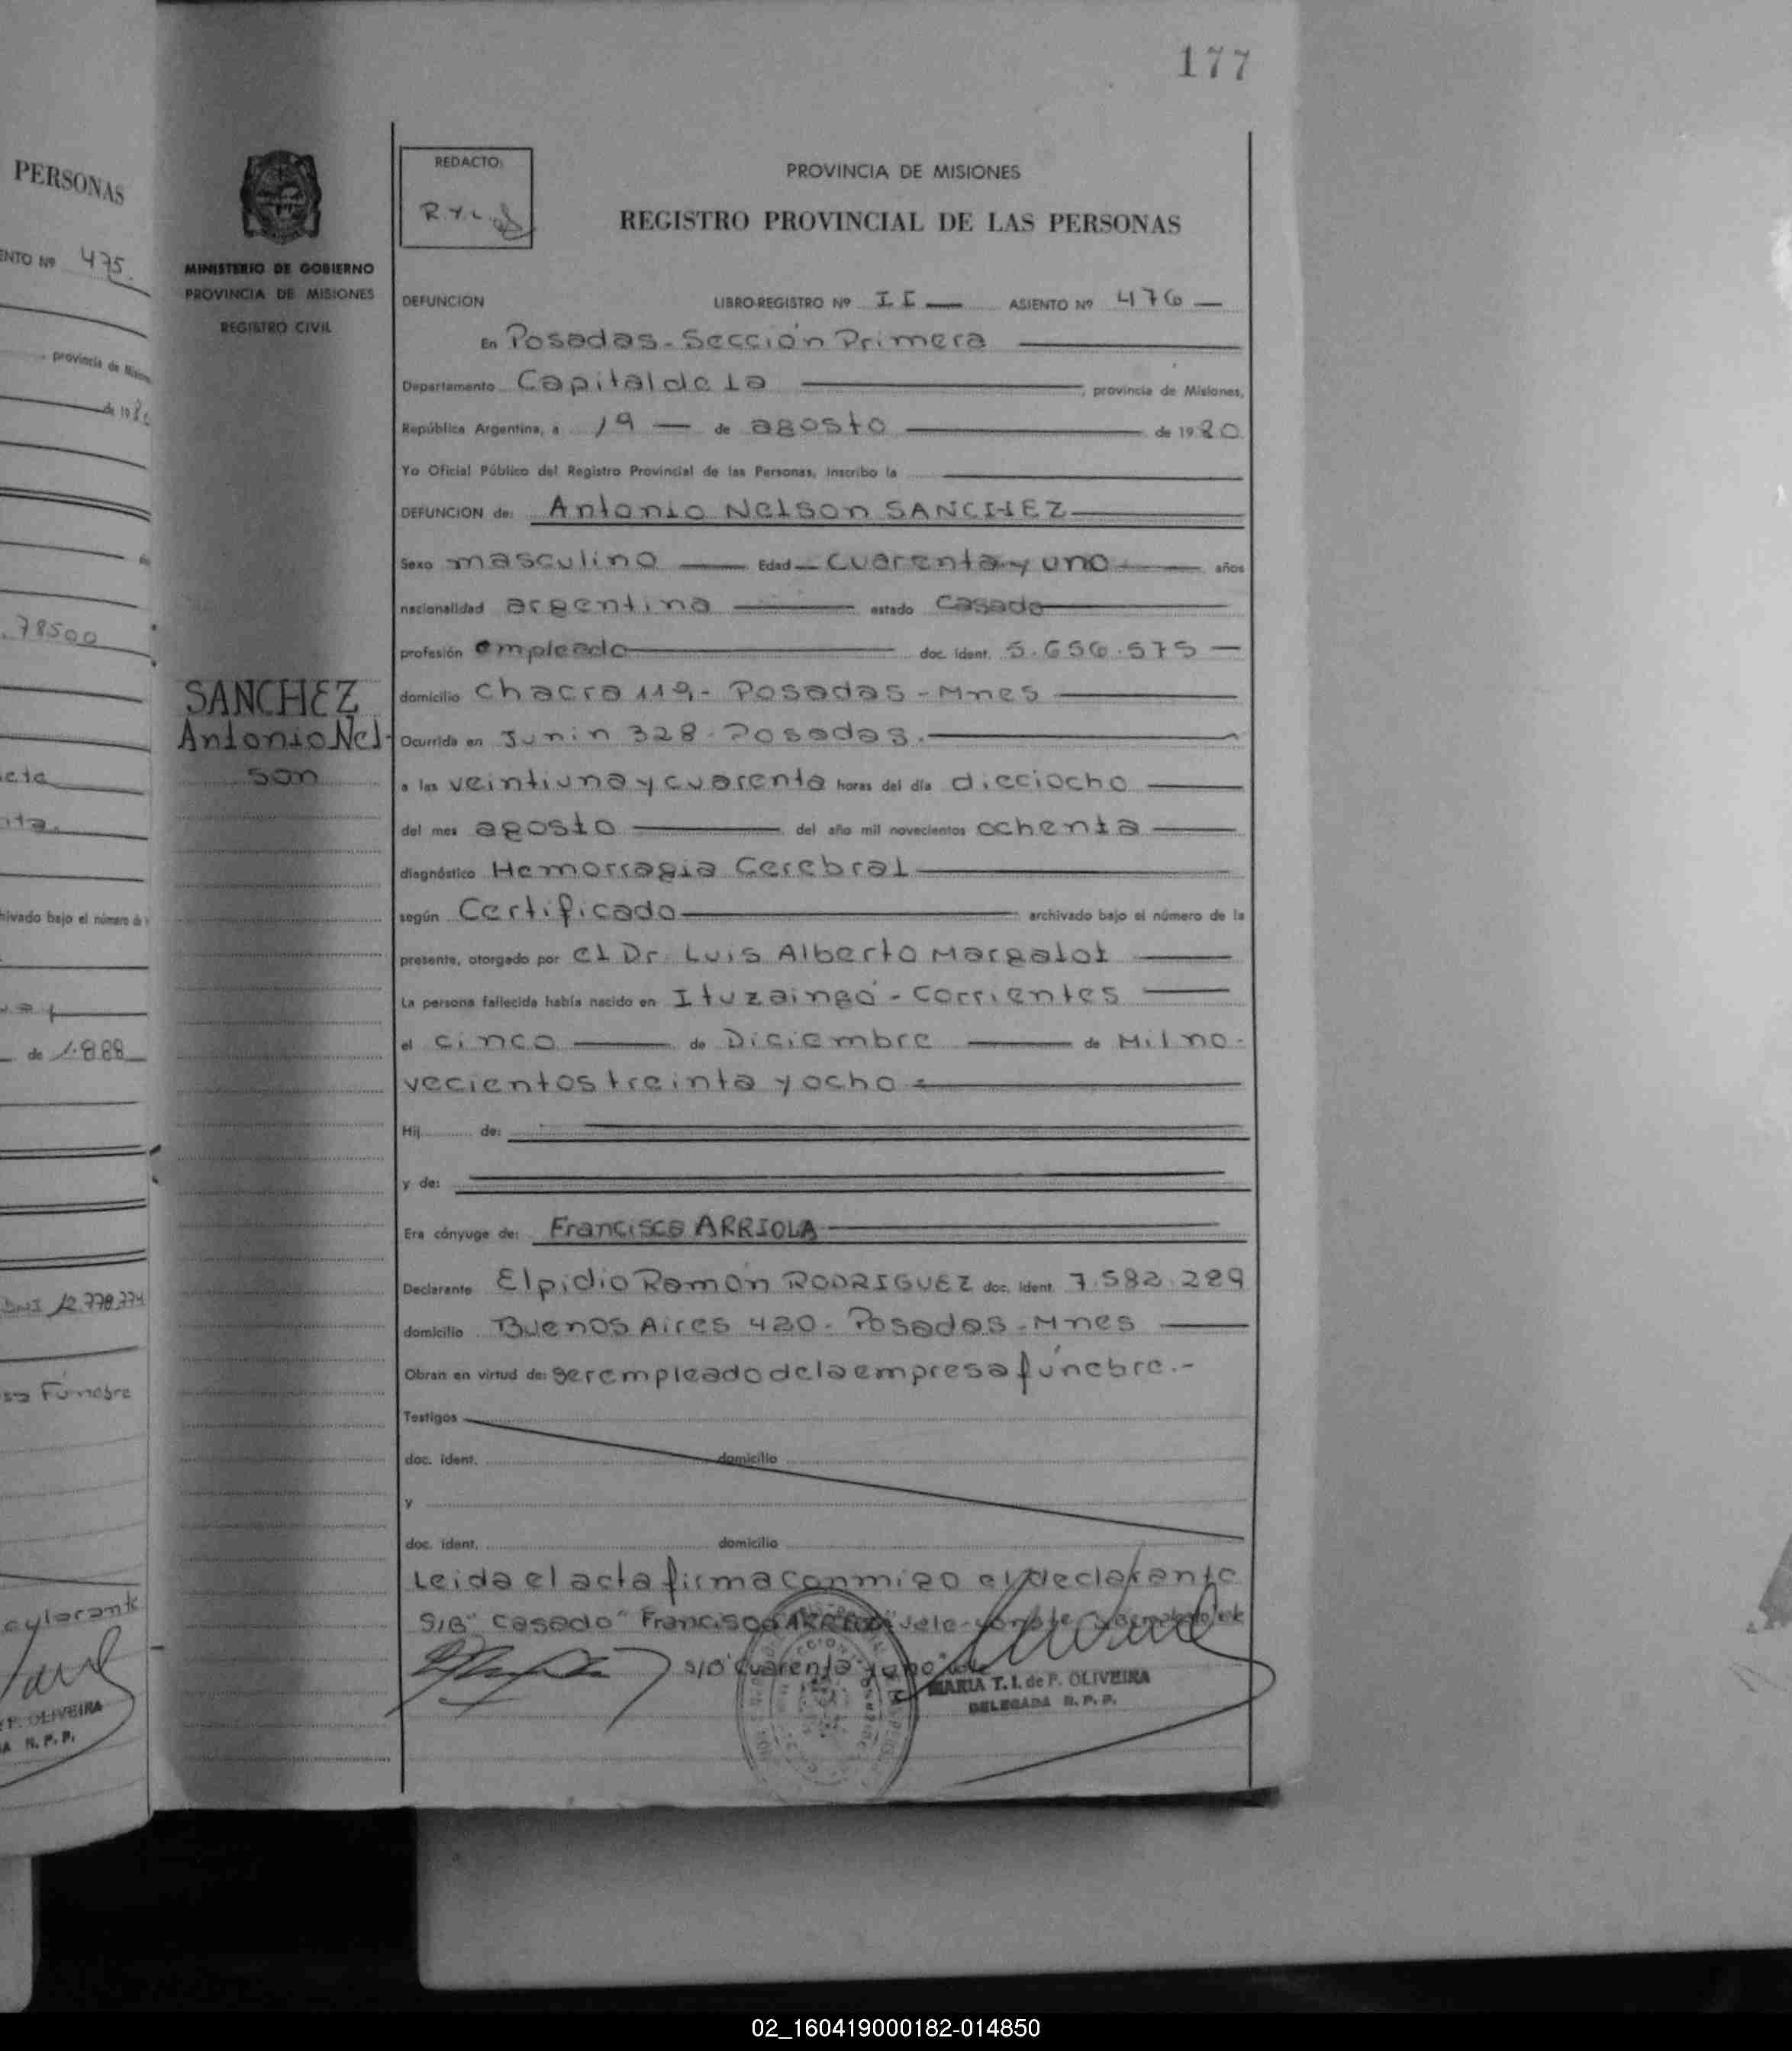 177
PERSONAS
ENTO Nº 475
provincia de Mision
de 19 80
78500
hivado bajo el número de
de 1.888
DNI 12.778.774
Fúnebre
P. OLIVEIRA
A R. P. P.
MINISTERIO DE GOBIERNO
PROVINCIA DE MISIONES
REGISTRO CIVIL
SANCHEZ
Antonio Nel-
son
REDACTO:
R.Y.L.
PROVINCIA DE MISIONES
REGISTRO PROVINCIAL DE LAS PERSONAS
DEFUNCION LIBRO-REGISTRO Nº II — ASIENTO Nº 476 —
En Posadas - Sección Primera
Departamento Capital de La , provincia de Misiones,
República Argentina, a 19 — de agosto de 1980
Yo Oficial Público del Registro Provincial de las Personas, inscribo la
DEFUNCION de: Antonio Nelson SANCHEZ
Sexo masculino Edad cuarenta y uno años
nacionalidad argentina estado casado
profesión empleado doc. ident. 5.656.575 —
domicilio Chacra 119 - Posadas - Mnes
Ocurrida en Junin 328 - Posadas.
a las veintiuna y cuarenta horas del día dieciocho
del mes agosto del año mil novecientos ochenta
diagnóstico Hemorragia Cerebral
según Certificado archivado bajo el número de la
presente, otorgado por el Dr. Luis Alberto Margalot
La persona fallecida había nacido en Ituzaingó - Corrientes
el cinco de Diciembre de Mil no-
vecientos treinta y ocho =
Hij de:
y de:
Era cónyuge de: Francisca ARRIOLA
Declarante Elpidio Ramón RODRIGUEZ doc. ident. 7.582.289
domicilio Buenos Aires 420 - Posadas - Mnes
Obran en virtud de: ser empleado de la empresa fúnebre.-
Testigos
doc. ident. domicilio
y
doc. ident. domicilio
Leida el acta firma conmigo el declarante
S/B "casado" Francisca ARRIOLA vale
S/B "cuarenta y uno" vale
MARIA T. I. de P. OLIVEIRA
DELEGADA R. P. P.
02_160419000182-014850